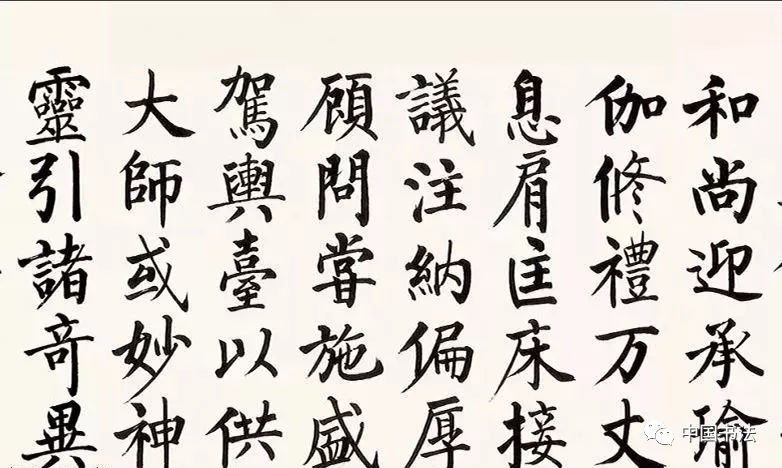 和尚迎承瑜
伽修禮万丈
息肩匡床接
議注納偏厚
顧問嘗施盛
駕輿臺以供
大師或妙神
靈引諸奇異
中国书法